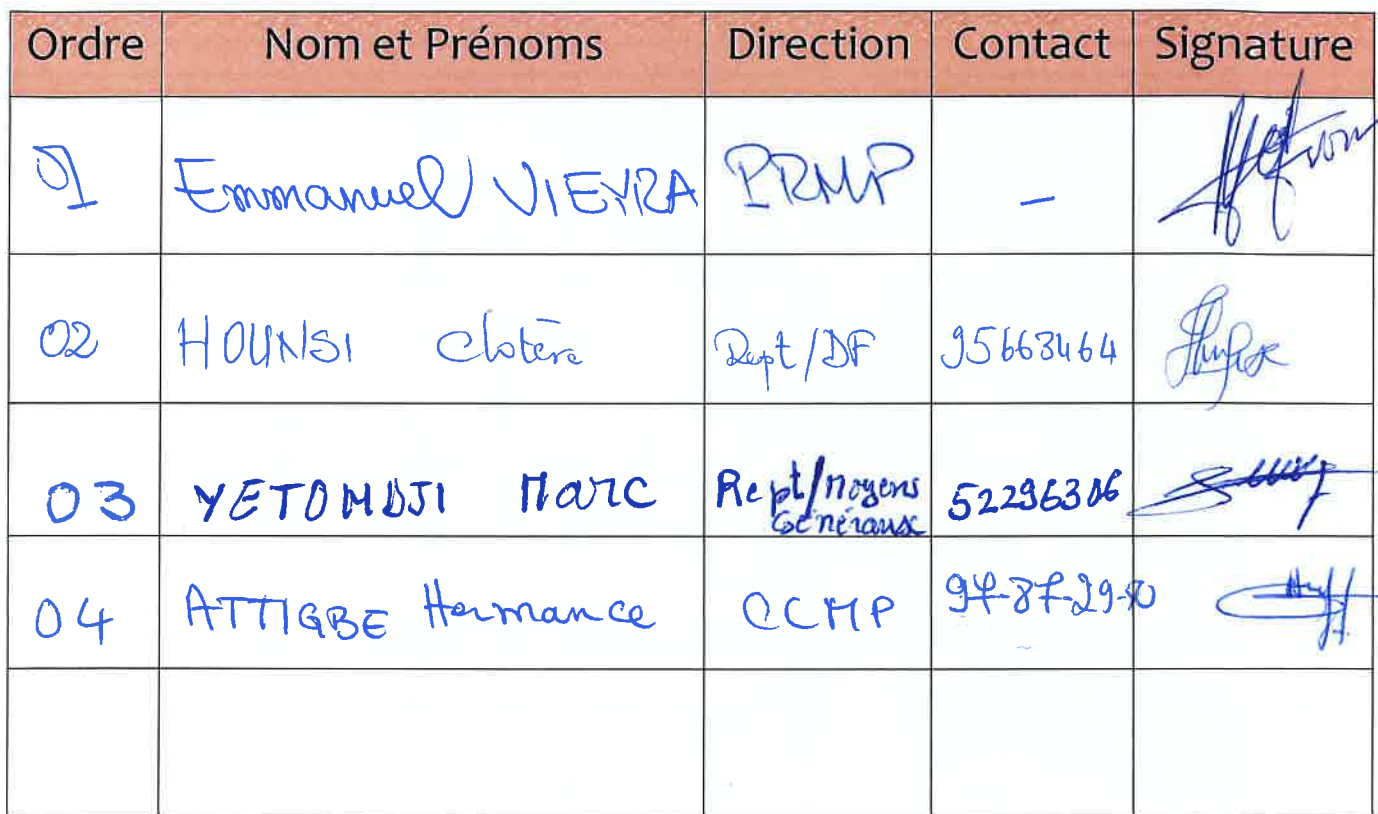 Ordre Nom et Prénoms Direction Contact Signature
01 Emmanuel VIEYRA PRMP -
02 HOUNSI Clotère Rept/DF 95663464
03 YETOMDJI Marc Rept/Moyens Généraux 52296306
04 ATTIGBE Hermance CCMP 97-87-29-80